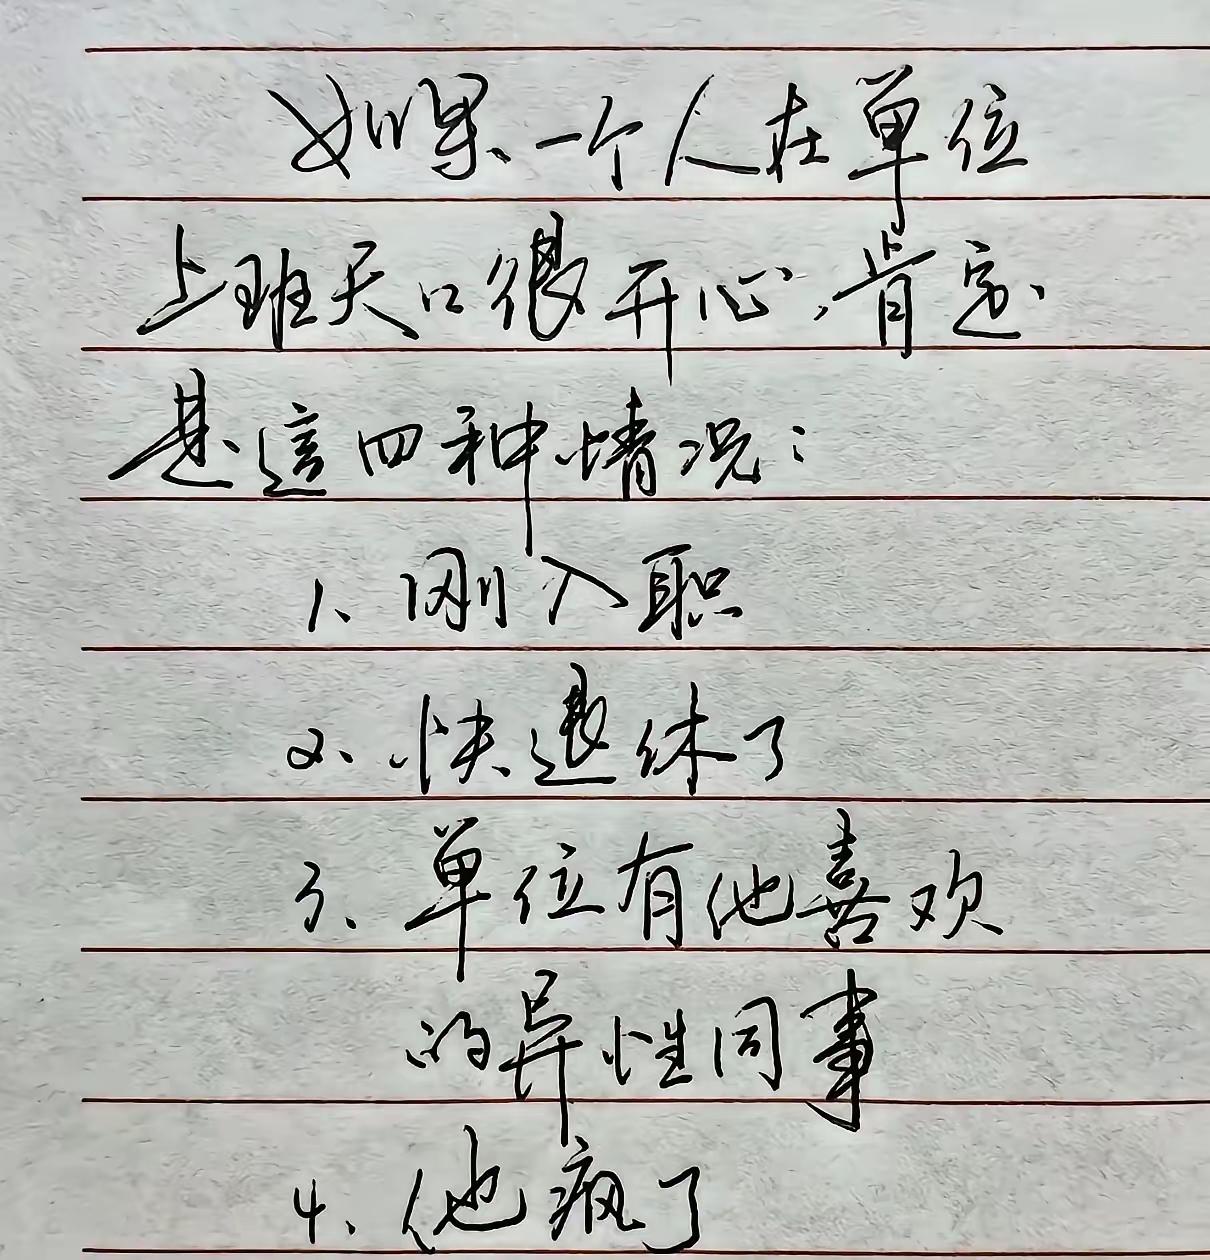 如果一个人在单位
上班天天很开心,肯定
是這四种情况:
1、刚入职
2、快退休了
3、单位有他喜欢
的异性同事
4、他疯了